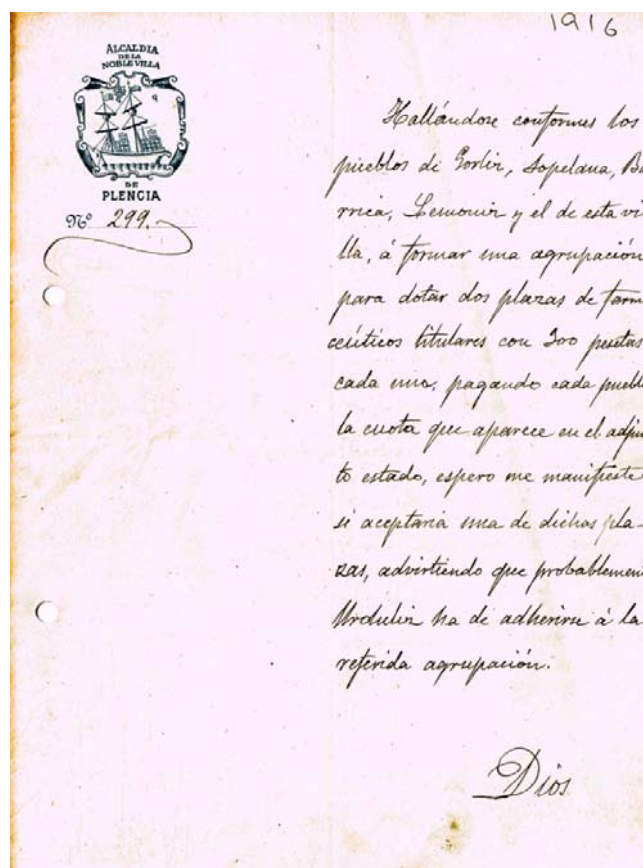 1916
ALCALDIA
DE LA
NOBLE VILLA
DE
PLENCIA
Nº 299.
Hallándose conformes los
pueblos de Gorliz, Sopelana, Ba
rrica, Lemoniz y el de esta vi
lla, á formar una agrupación
para dotar dos plazas de farma
céuticos titulares con 300 pesetas
cada uno, pagando cada pueblo
la cuota que aparece en el adjun
to estado, espero me manifieste
si aceptaría una de dichas pla-
zas, advirtiendo que probablemen
Urduliz ha de adherirse á la
referida agrupación.
Dios